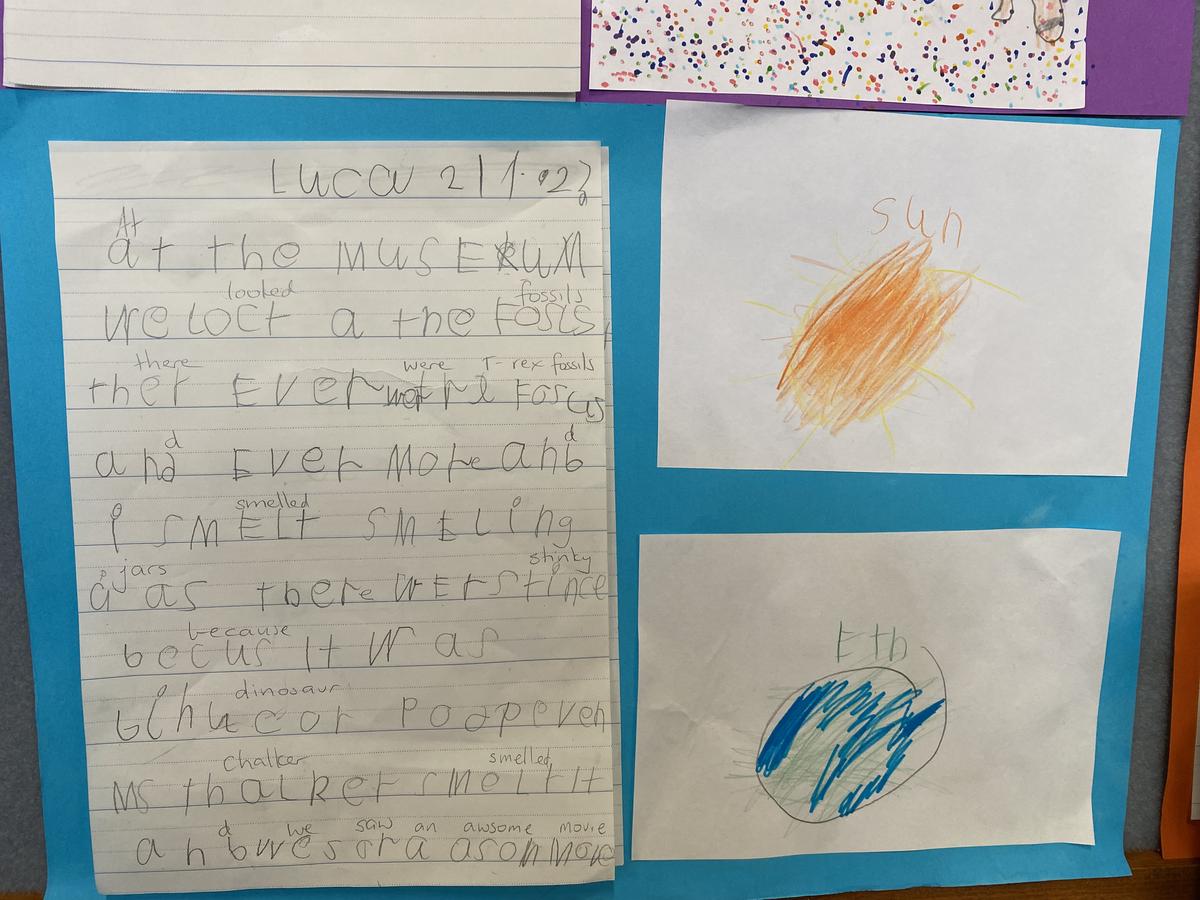 Luca 21.1.23
At
at the MUSEUM
looked fossils
we loct a the Foscls,
there were T-rex fossils
ther Ever trl Foscls
d d
and Ever More anb
smelled
i SMELt SMELing
jars stinky
a as there wer stince
because
becus It was
dinosaur
binucor Poop even
chalker smelled
MS thalker smelt It
d we saw an awsome movie
anb we sor a
sun
Eth